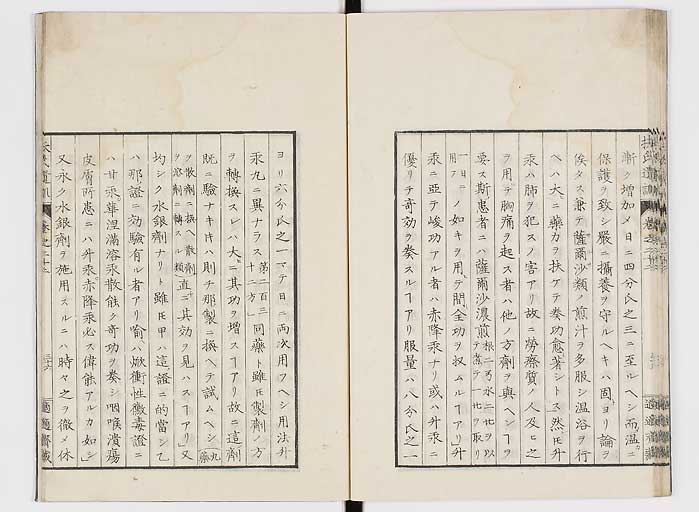 漸ク增加メ日ニ四分氏之三ニ至ルヘシ而溫ニ
保護ヲ致シ嚴ニ攝養ヲ守ルヘキハ固ヨリ論ヲ
俟タス兼テ薩爾沙類ノ煎汁ヲ多服シ溫浴ヲ行
ヘハ大ニ藥力ヲ扶ケテ奏功愈著シトス然𪜈升
汞ハ肺ヲ犯スノ害アリ故ニ勞瘵質ノ人及ヒ之
ヲ用テ胸痛ヲ起ス者ハ他ノ方劑ヲ與ヘシヿヲ
要ス斯患者ニハ薩爾沙濃煎
一日ニノ如キヲ用テ間全功ヲ収ムルヿアリ升
汞ニ亞テ峻功アル者ハ赤降汞ナリ或ハ升汞ニ
優リテ奇効ヲ奏スルヿアリ服量ハ八分氏之一
ヨリ六分氏之一マテ日ニ兩次用フヘシ用法升
汞丸ニ異ナラス第二百三十一方同藥ト雖𪜈製劑ノ方
ヲ轉換スレハ大ニ其功ヲ增スヿアリ故ニ這劑
既ニ驗ナキ𪜈ハ則チ那製ニ換ヘテ試ムヘシ丸藥
ヲ散劑ニ換ヘ散劑ヲ溶劑ニ轉スル類直ニ其効ヲ見ハスヿアリ又
均シク水銀劑ナリト雖𪜈甲ハ這證ニ的當シ乙
ハ那證ニ効驗有ル者アリ喩ヘハ焮衝性黴毒證ニ
ハ甘汞華溼滿溶汞散蝕ク奇功ヲ奏シ咽喉潰瘍
皮膚所患ニハ升汞赤降汞必ス偉蝕アルカ如シ
又永ク水銀劑ヲ施用スルニハ時々之ヲ徹メ休
卷之二十二
適適齋藏